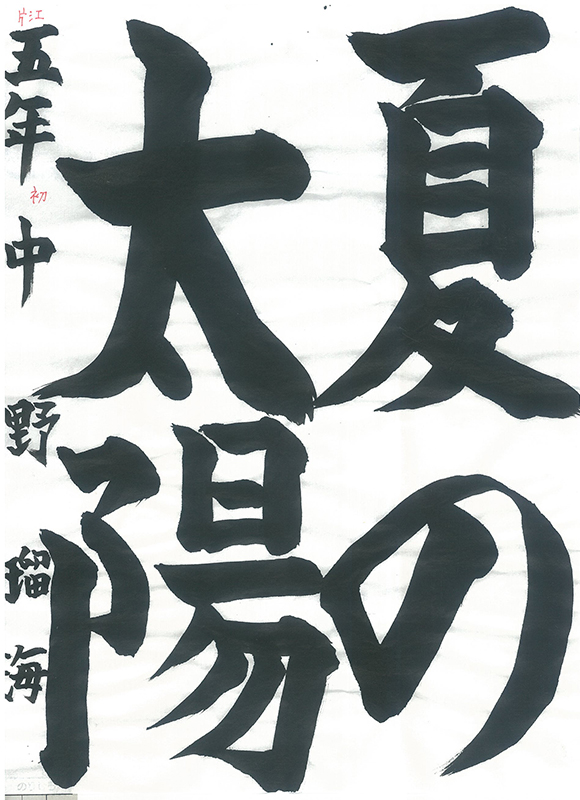 夏の
太陽
片江
五年
初
中野瑠海